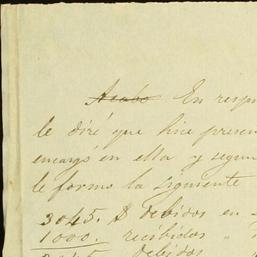 Acabo En resp
le diré que hice presen
encargó en ella y segun
le formo la siguiente
3045. $ debidos en
1000. recibidos "
debidos